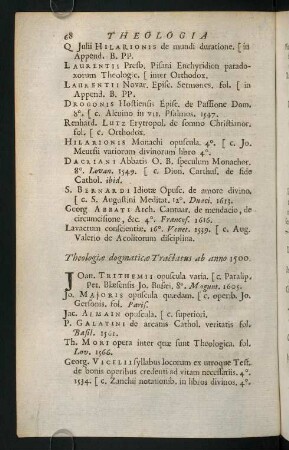 68 THEOLOGIA
Q Julii HILARIONIS de mundi duratione. [ in
Append. B. PP.
LAURENTII Presb. Pisani Enchyridion parado-
xorum Theologic. [ inter Orthodox.
LAURENTII Novar. Episc. Sermones. fol. [ in
Append. B. PP.
DROGONIS Hostiensis Episc. de Passione Dom.
8°. [ c. Alcuino in VII. Psalmos. 1547.
Renhard. LUTZ Erytropol. de somno Christianor.
fol. [ c. Orthodox.
HILARIONIS Monachi opuscula. 4°. [ c. Jo.
Meursii variorum divinorum libro 4°.
DACRIANI Abbatis O. B. speculum Monachor.
8°. Lovan. 1549. [ c. Dion. Carthus. de fide
Cathol. ibid.
S. BERNARDI Idiotæ Opusc. de amore divino.
[ c. S. Augustini Meditat. 12°. Duaci. 1613.
Georg ABBATI Arch. Cantuar. de mendacio, de
circumcisione, &c. 4°. Francof. 1616.
Lavacrum conscientiæ. 16°. Venet. 1539. [ c. Aug.
Valerio de Acolitorum disciplina.
Theologiæ dogmaticæ Tractatus ab anno 1500.
JOan. TRITHEMII opuscula varia. [ c. Paralip.
Pet. Blæsensis Jo. Busæi. 8°. Mogunt. 1605.
Jo. MAJORIS opuscula quædam. [ c. operib. Jo.
Gersonis. fol. Paris.
Jac. ALMAIN opuscula. [ c. superiori.
P. GALATINI de arcanis Cathol. veritatis fol.
Basil. 1561.
Th. MORI opera inter quæ sunt Theologica. fol.
Lov. 1566.
Georg. VICELII syllabus locorum ex utroque Test.
de bonis operibus credenti ad vitam necessariis. 4°.
1534. [ c. Zanchii notationib. in libros divinos. 4°.